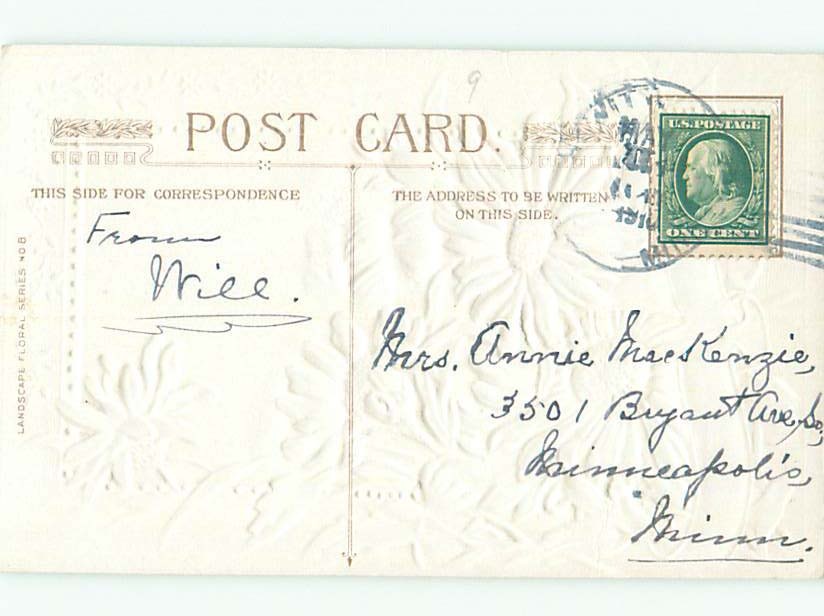 9
POST CARD.
THIS SIDE FOR CORRESPONDENCE
THE ADDRESS TO BE WRITTEN
ON THIS SIDE.
U.S. POSTAGE
ONE CENT
LANDSCAPE FLORAL SERIES NO 8
From
Will.
Mrs. Annie MacKenzie,
3501 Bryant Ave, So,
Minneapolis,
Minn.